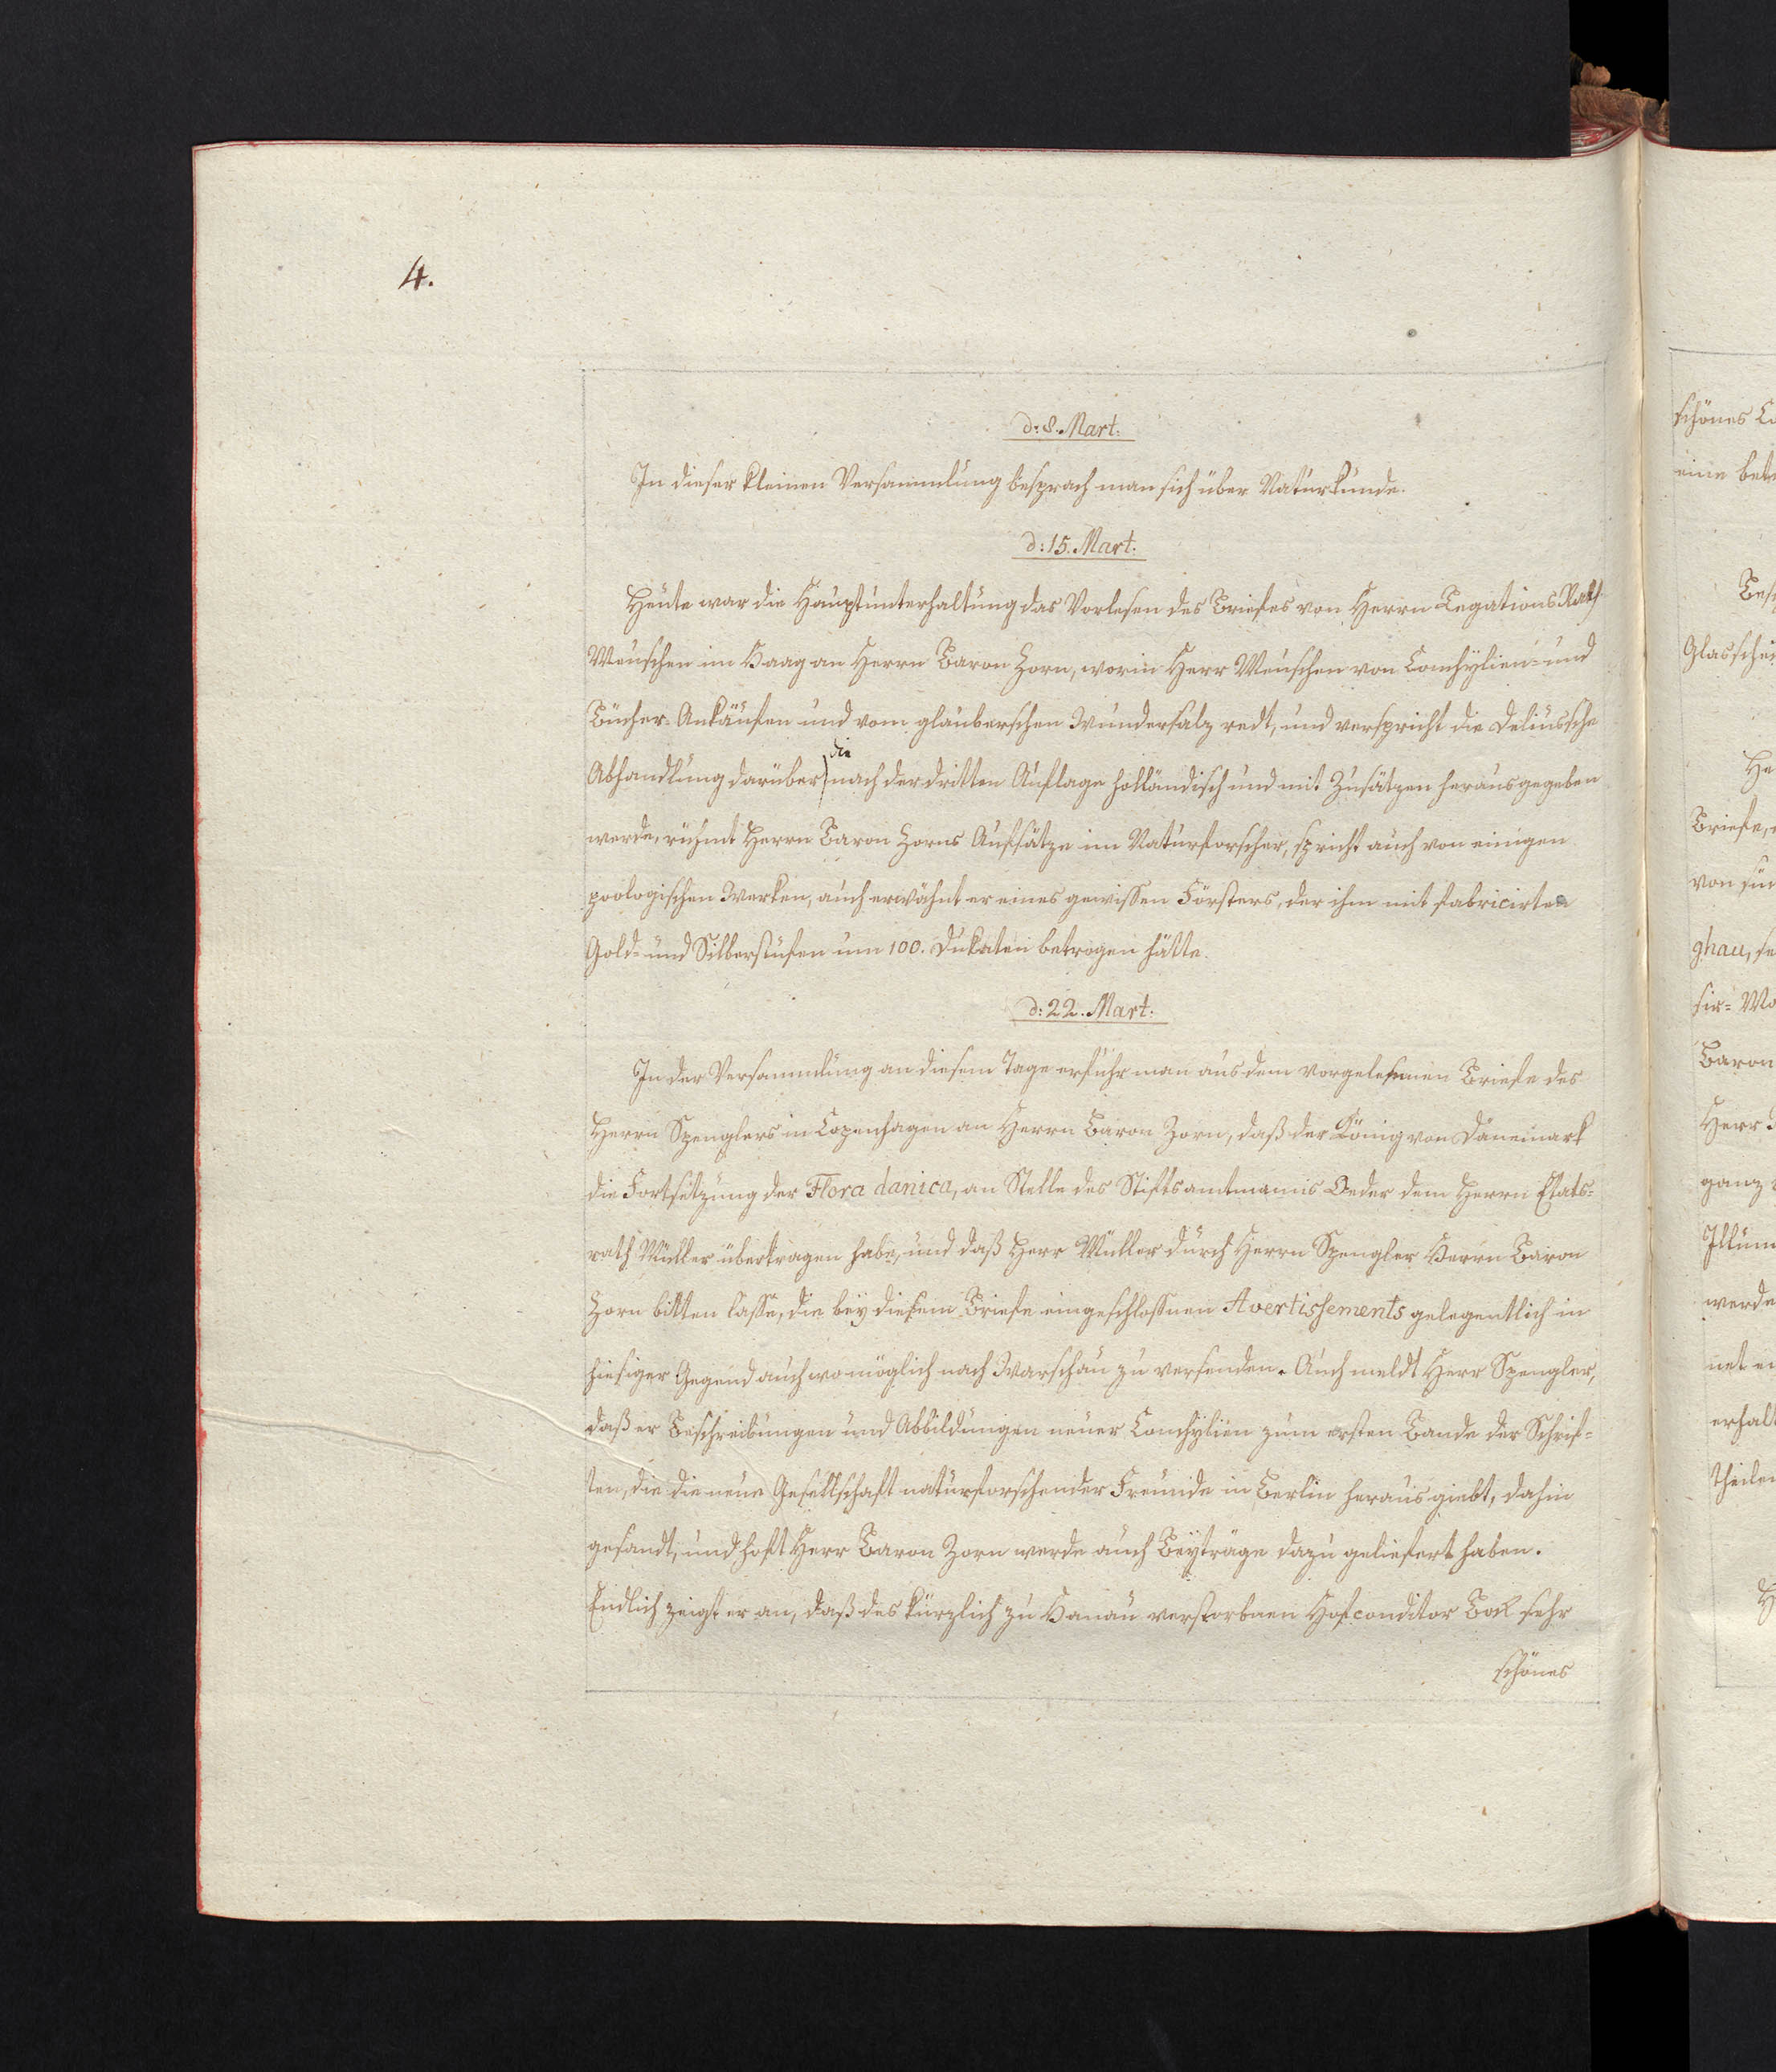 4.
d. 8. Mart.
In dieser kleinen Versammlung besprach man sich über Naturkunde.
d: 15. Mart.
Heute war die Hauptunterhaltung das Vorlesen des Briefes von Herrn LegationsRath
Meuschen im Haag an Herrn Baron Zorn, worin Herr Meuschen von Conchylien- und
Bücher-Ankäufen und vom glauberschen Wundersalz redt, und verspricht die Deliussche
Abhandlung darüber die nach der dritten Auflage holländisch und mit Zusätzen herausgegeben
werde, rühmt Herrn Baron Zorns Aufsätze im Naturforscher, spricht auch von einigen
zoologischen Werken, auch erwähnt er eines gewissen Försters, der ihm mit fabricirten
Gold- und Silberstufen um 100. Dukaten betrogen hätte.
d: 22. Mart.
In der Versammlung an diesem Tage erfuhr man aus dem vorgelesenen Briefe des
Herrn Spenglers in Copenhagen an Herrn Baron Zorn, daß der König von Dänemark
die Fortsetzung der Flora danica, an Stelle des Stiftsamtmanns Oeder dem Herrn Etats-
rath Müller übertragen habe, und daß Herr Müller durch Herrn Spengler Herrn Baron
Zorn bitten lasse, die bey diesem Briefe eingeschlossnen Avertissements gelegentlich in
hiesiger Gegend auch womöglich nach Warschau zu versenden. Auch meldt Herr Spengler,
daß er Beschreibungen und Abbildungen neuer Conchylien zum ersten Bande der Schrif-
ten, die die neue Gesellschaft naturforschender Freunde in Berlin heraus giebt, dahin
gesandt, und hoft Herr Baron Zorn werde auch Beyträge dazu geliefert haben.
Endlich zeigt er an, daß des kürzlich zu Hanau verstorbnen Hofconditor Bock sehr
schönes
schönes
eine
Glasschei
Briefe,
von
ghau, se
Baron
Herr
ganz
Illum
werde
net
erhalt
theilen